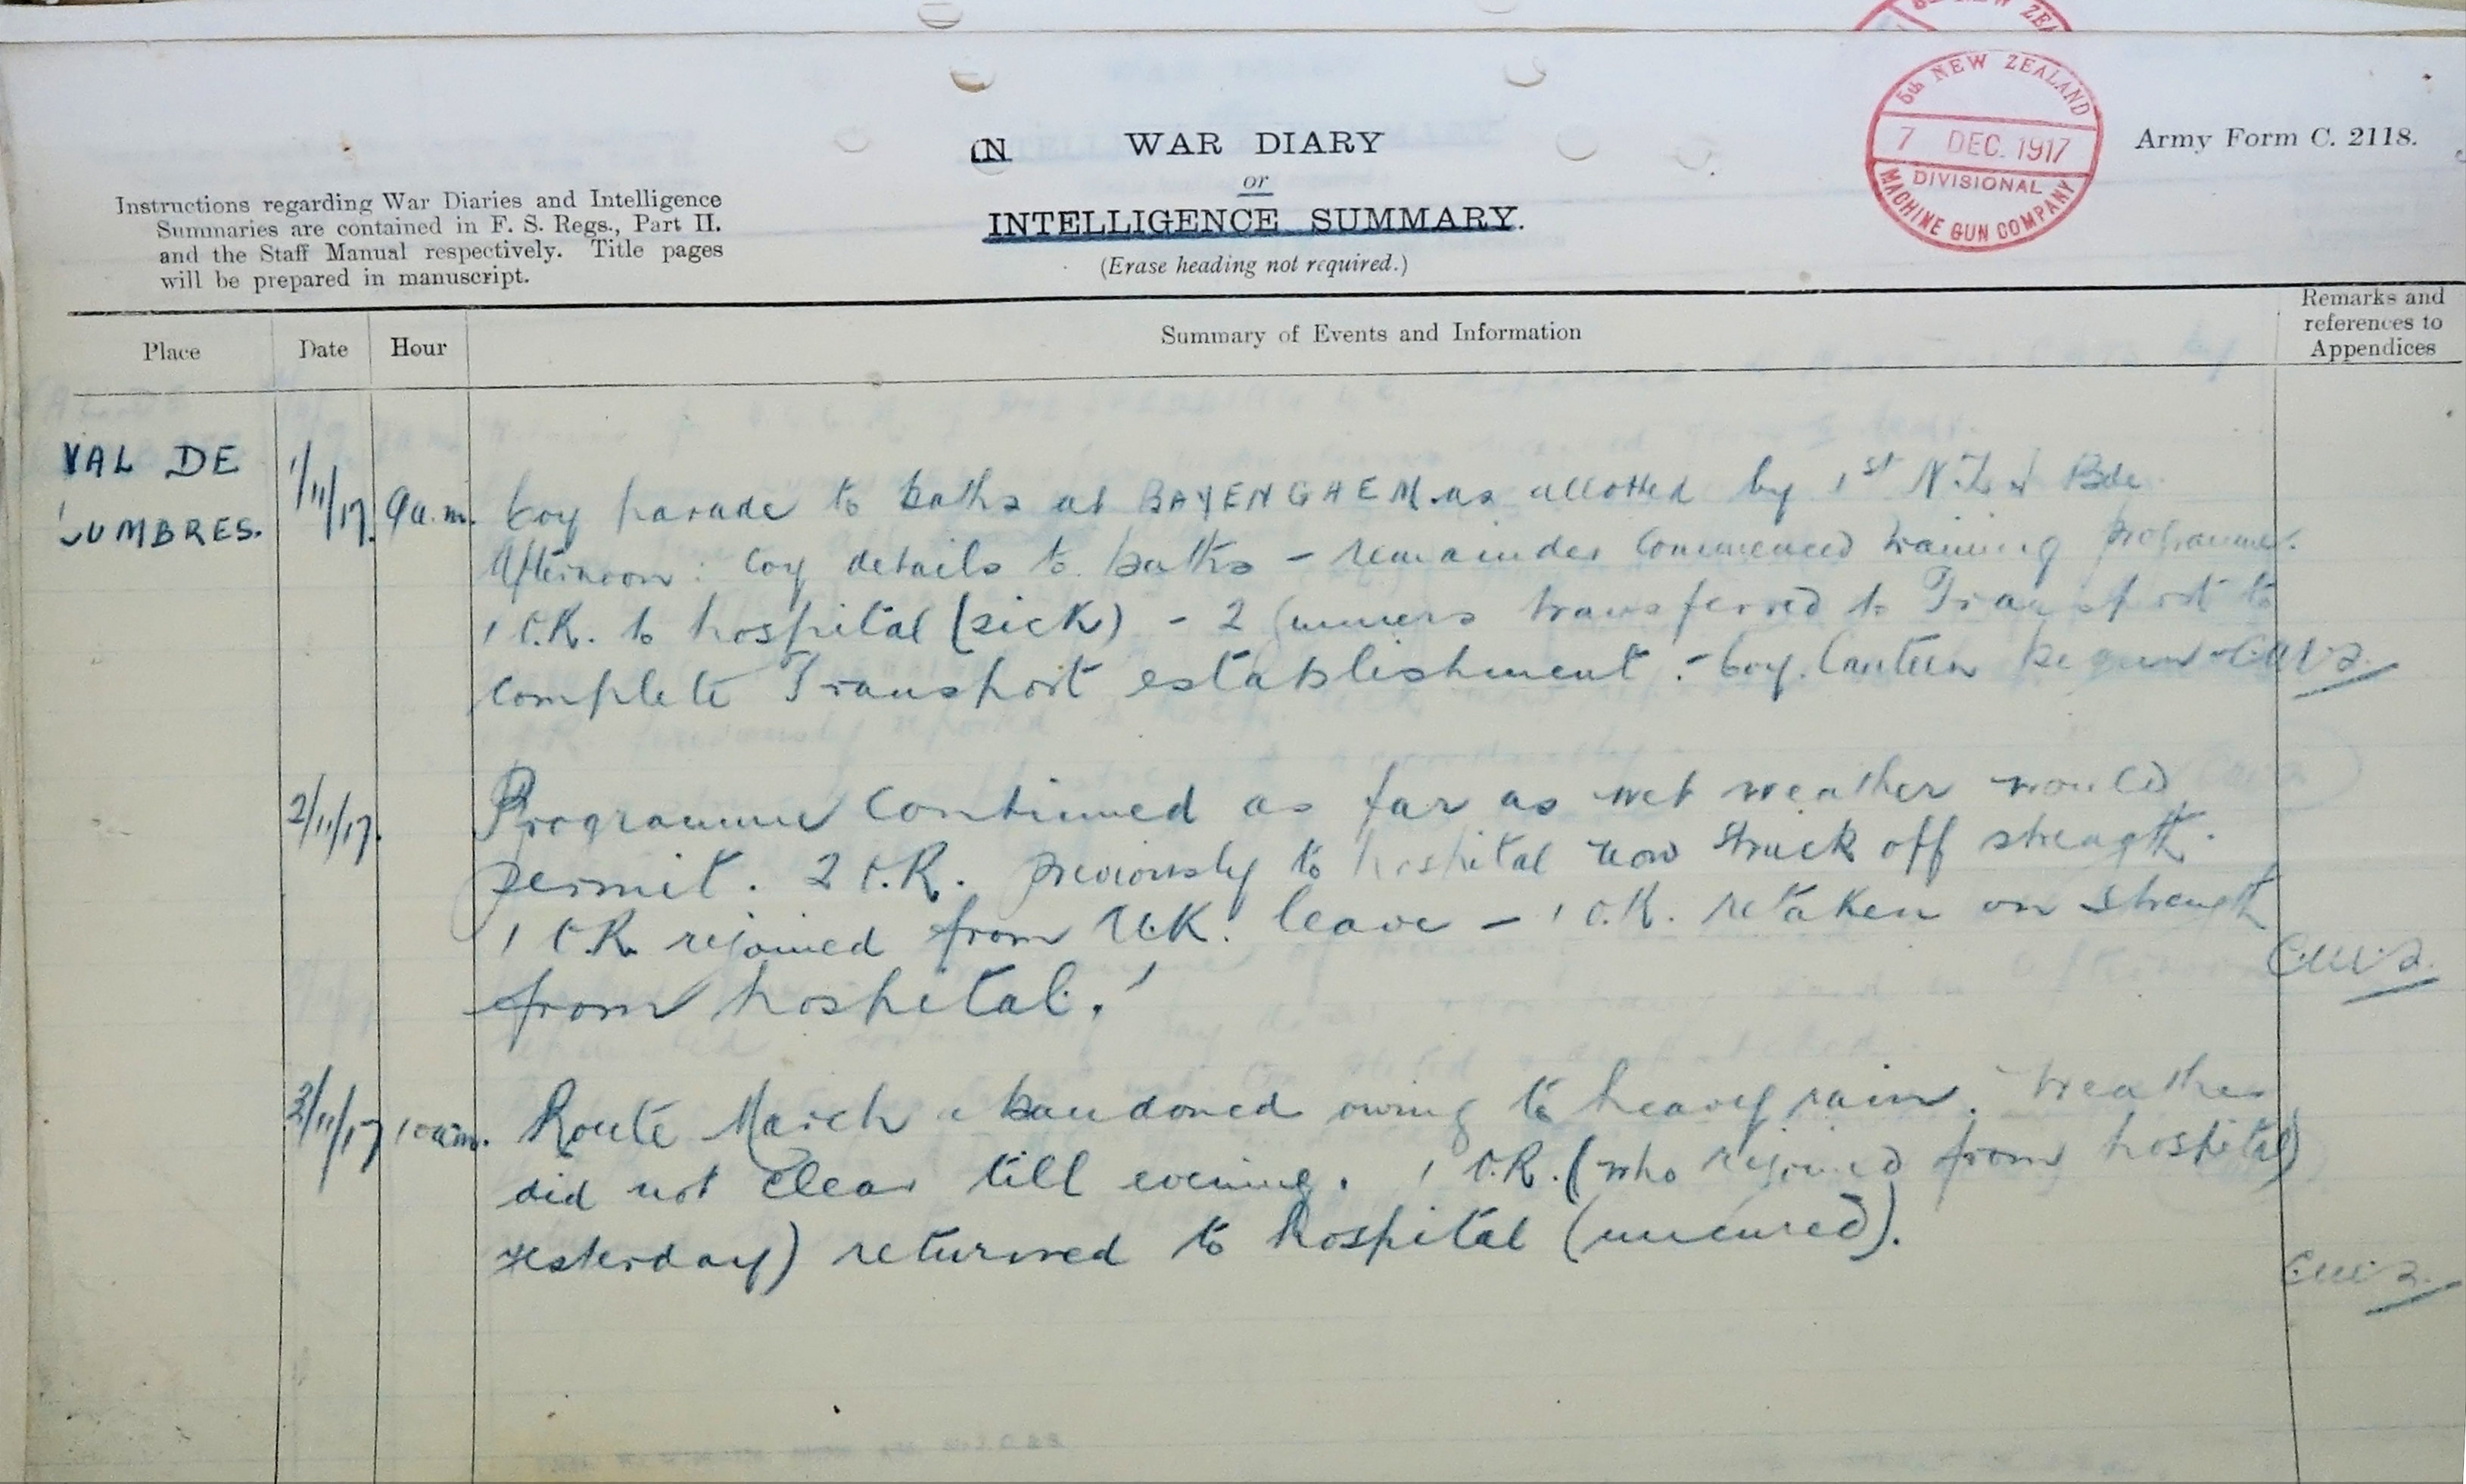 5th NEW ZEALAND
7 DEC. 1917
DIVISIONAL
MACHINE GUN COMPANY
WAR DIARY
or
INTELLIGENCE SUMMARY.
(Erase heading not required.)
Army Form C. 2118.
Instructions regarding War Diaries and Intelligence
Summaries are contained in F. S. Regs., Part II.
and the Staff Manual respectively. Title pages
will be prepared in manuscript.
Place Date Hour Summary of Events and Information Remarks and
references to
Appendices
VAL DE
LUMBRES.
1/11/17. 9a.m. Coy parade to baths at BAYENGHEM as allotted by 1st N.Z. Bde.
Afternoon: Coy details to baths - remainder commenced training programme.
1 O.R. to hospital (sick) - 2 Gunners transferred to Transport to
complete Transport establishment. - Coy. Canteen begun
2/11/17. Programme continued as far as wet weather would
permit. 2 O.R. previously to hospital now struck off strength.
1 O.R. rejoined from U.K. leave - 1 O.R. retaken on strength
from hospital.
3/11/17 10am. Route March abandoned owing to heavy rain. Weather
did not clear till evening. 1 O.R. (who rejoined from hospital
yesterday) returned to hospital (uncured).